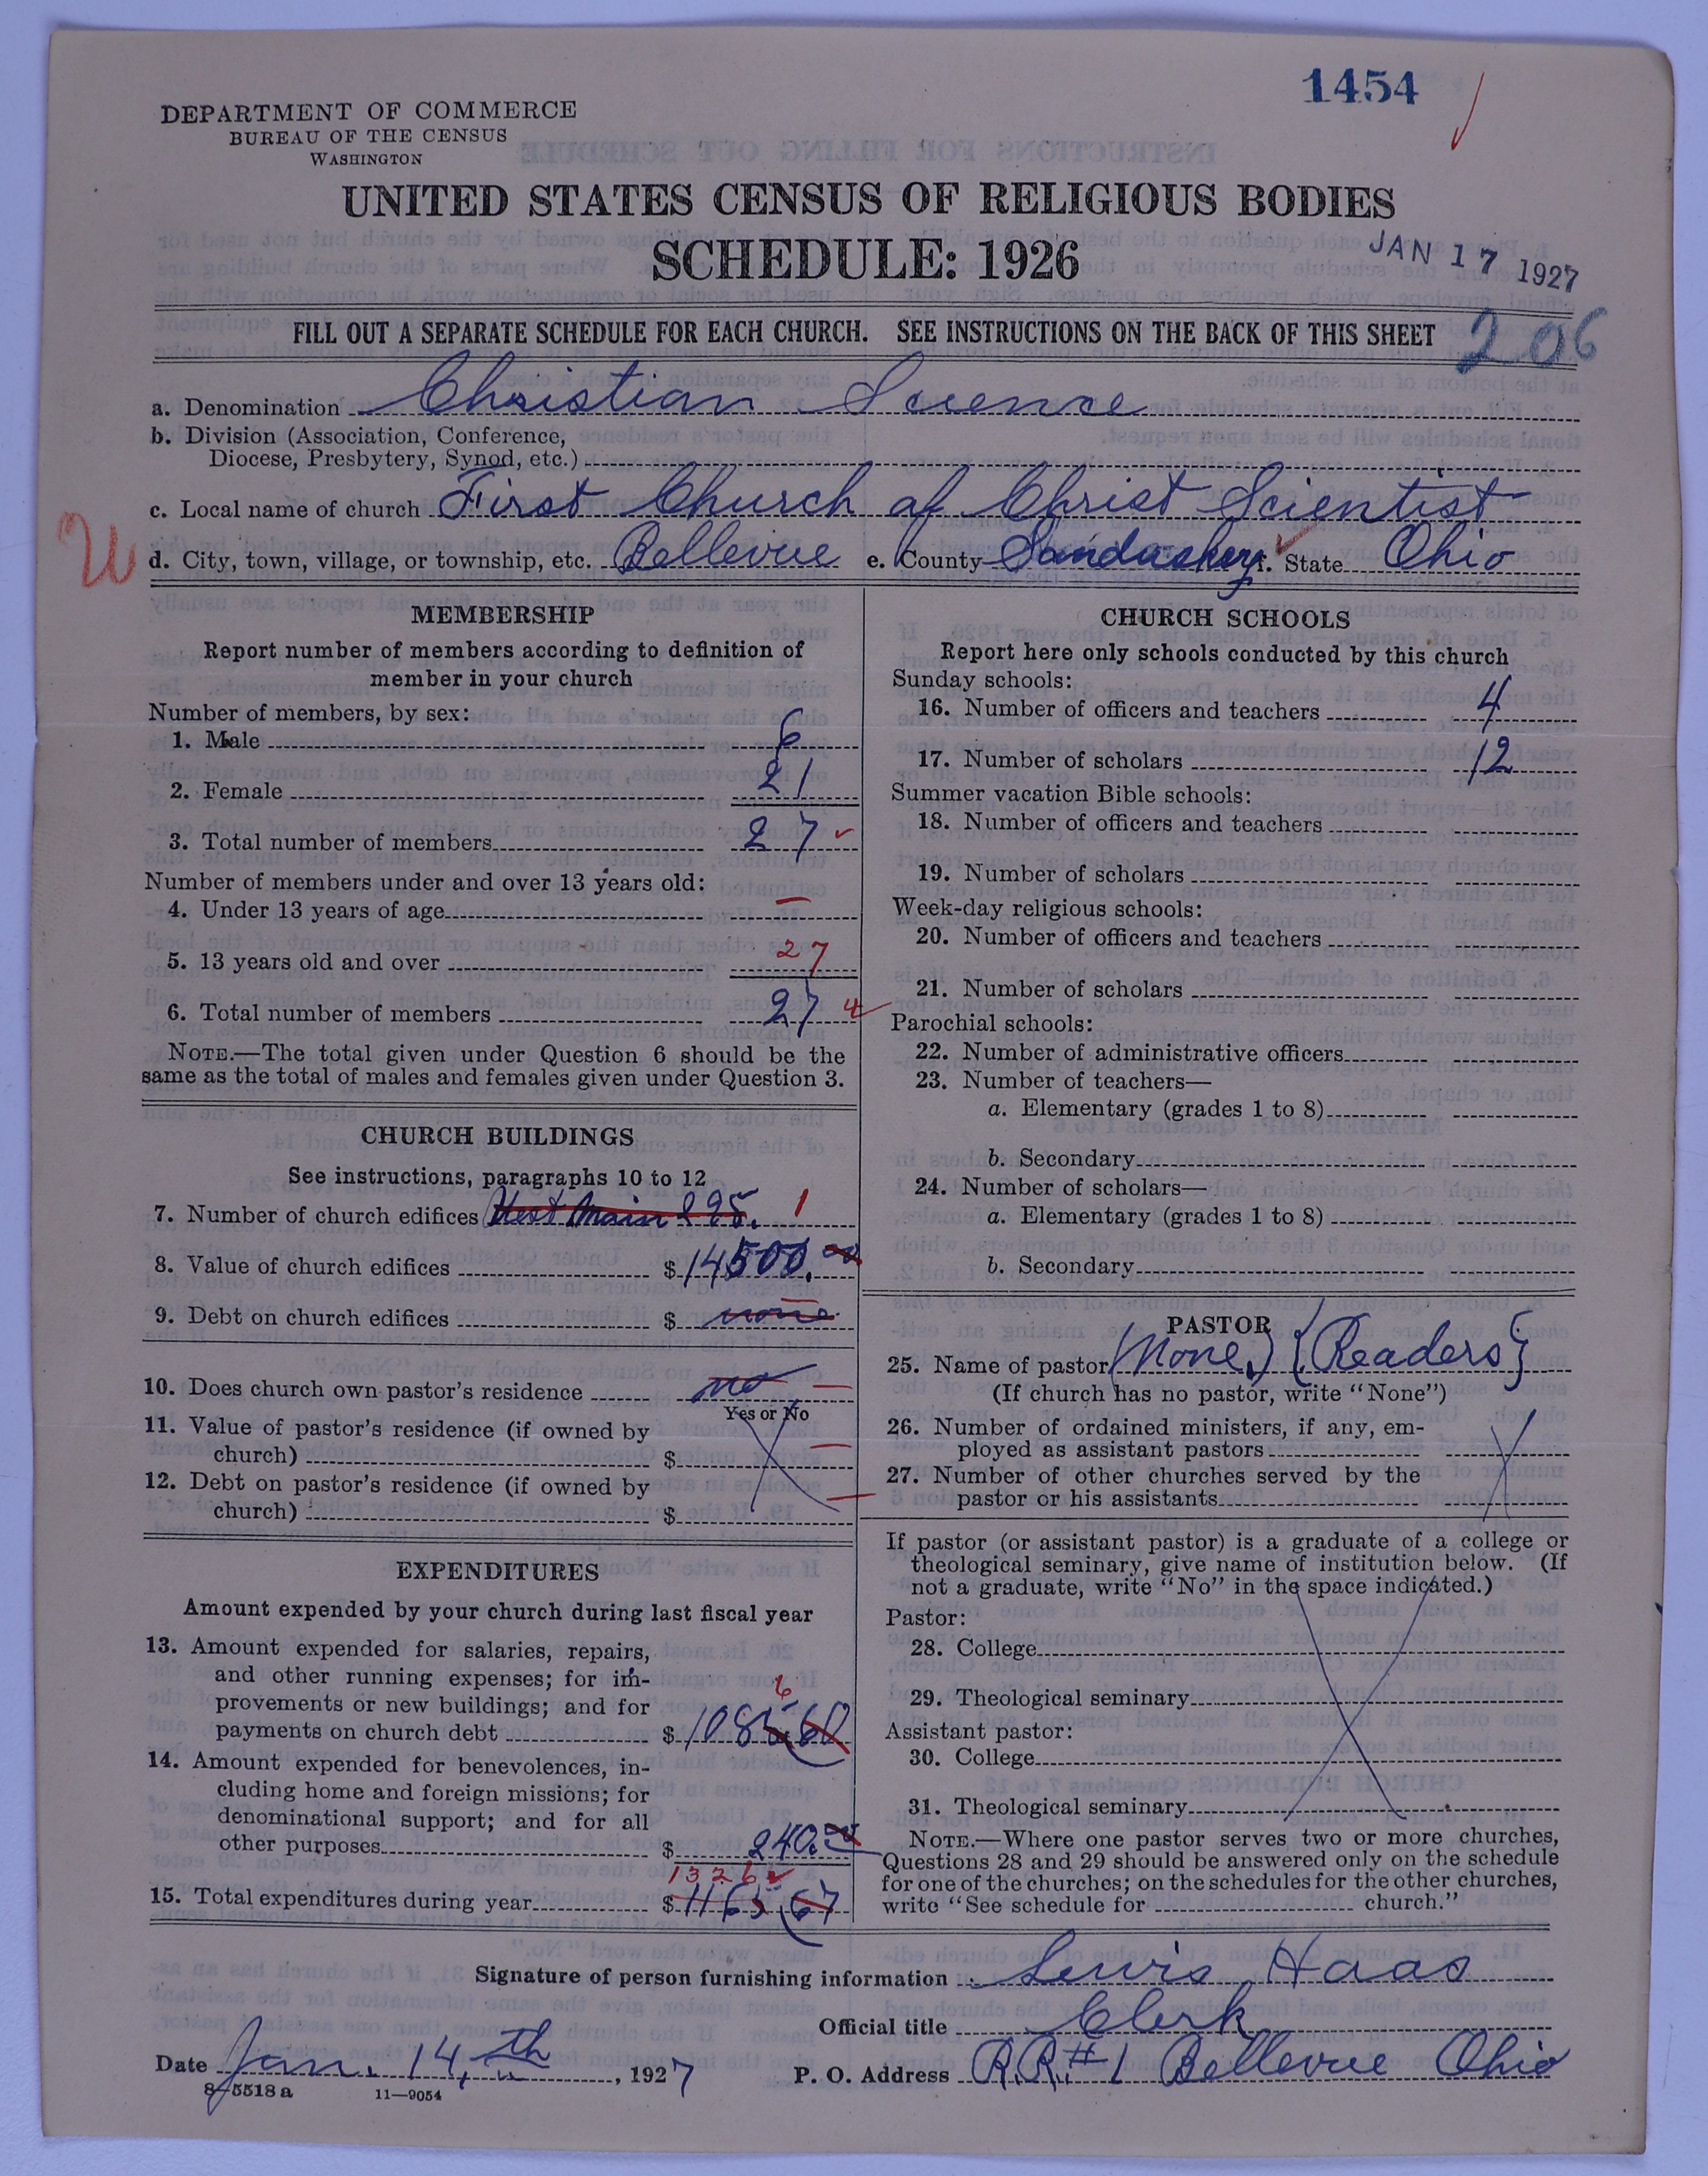 1454
DEPARTMENT OF COMMERCE
BUREAU OF THE CENSUS
WASHINGTON
UNITED STATES CENSUS OF RELIGIOUS BODIES
SCHEDULE: 1926
JAN 17 1927
FILL OUT A SEPARATE SCHEDULE FOR EACH CHURCH. SEE INSTRUCTIONS ON THE BACK OF THIS SHEET
206
a. Denomination Christian Science
b. Division (Association, Conference,
Diocese, Presbytery, Synod, etc.)
c. Local name of church First Church of Christ Scientist
W d. City, town, village, or township, etc. Bellevue e. County Sandusky f. State Ohio
MEMBERSHIP
Report number of members according to definition of
member in your church
Number of members, by sex:
1. Male 6
2. Female 21
3. Total number of members 27
Number of members under and over 13 years old:
4. Under 13 years of age —
5. 13 years old and over 27
6. Total number of members 27
NOTE.—The total given under Question 6 should be the
same as the total of males and females given under Question 3.
CHURCH BUILDINGS
See instructions, paragraphs 10 to 12
7. Number of church edifices West Main 1
8. Value of church edifices $ 14500.00
9. Debt on church edifices $ none
10. Does church own pastor's residence no —
Yes or No
11. Value of pastor's residence (if owned by
church) $ —
12. Debt on pastor's residence (if owned by
church) $ —
EXPENDITURES
Amount expended by your church during last fiscal year
13. Amount expended for salaries, repairs,
and other running expenses; for im-
provements or new buildings; and for
6
payments on church debt $ 1085.60
14. Amount expended for benevolences, in-
cluding home and foreign missions; for
denominational support; and for all
other purposes $ 240.00
1326
15. Total expenditures during year $ 1163.67
CHURCH SCHOOLS
Report here only schools conducted by this church
Sunday schools:
16. Number of officers and teachers 4
17. Number of scholars 12
Summer vacation Bible schools:
18. Number of officers and teachers
19. Number of scholars
Week-day religious schools:
20. Number of officers and teachers
21. Number of scholars
Parochial schools:
22. Number of administrative officers
23. Number of teachers—
a. Elementary (grades 1 to 8)
b. Secondary
24. Number of scholars—
a. Elementary (grades 1 to 8)
b. Secondary
PASTOR
25. Name of pastor (None.) {Readers}
(If church has no pastor, write "None")
26. Number of ordained ministers, if any, em-
ployed as assistant pastors
27. Number of other churches served by the
pastor or his assistants
If pastor (or assistant pastor) is a graduate of a college or
theological seminary, give name of institution below. (If
not a graduate, write "No" in the space indicated.)
Pastor:
28. College
29. Theological seminary
Assistant pastor:
30. College
31. Theological seminary
NOTE.—Where one pastor serves two or more churches,
Questions 28 and 29 should be answered only on the schedule
for one of the churches; on the schedules for the other churches,
write "See schedule for church."
Signature of person furnishing information Lewis Haas
Official title Clerk
Date Jan. 14th, 1927 P. O. Address R.R. #1 Bellevue Ohio
8—5518a 11—9054